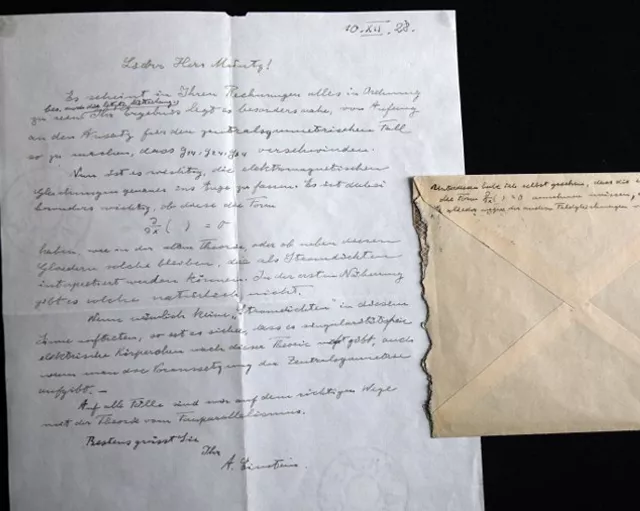 10.XII.28.
Lieber Herr Müntz!
Es scheint in Ihren Rechnungen alles in Ordnung
zu sein. Ihr Ergebnis legt es besonders nahe, von Anfang
an den Ansatz für den zentralsymmetrischen Fall
so zu machen, dass g14, g24, g34 verschwinden.
Nun ist es wichtig, die elektromagnetischen
Gleichungen genauer ins Auge zu fassen. Es ist dabei
besonders wichtig, ob diese die Form
∂/∂x ( ) = 0
haben, wie in der alten Theorie, oder ob neben diesem
Gliedern solche bleiben, die als Stromdichten
interpretiert werden können. In der ersten Näherung
gibt es solche natürlich nicht.
Wenn nämlich keine „Stromdichten" in diesem
Sinne auftreten, so ist es sicher, dass es singularitätsfreie
elektrische Körperchen nach dieser Theorie nicht gibt, auch
wenn man die Voraussetzung der Zentralsymmetrie
aufgibt.—
Auf alle Fälle sind wir auf dem richtigen Wege
mit der Theorie vom Fernparallelismus.
Bestens grüsst Sie
Ihr
A. Einstein.
Unterdessen habe ich selbst gesehen, dass die
die Form ∂/∂x ( ) = 0 annehmen müssen,
der anderen Feldgleichungen